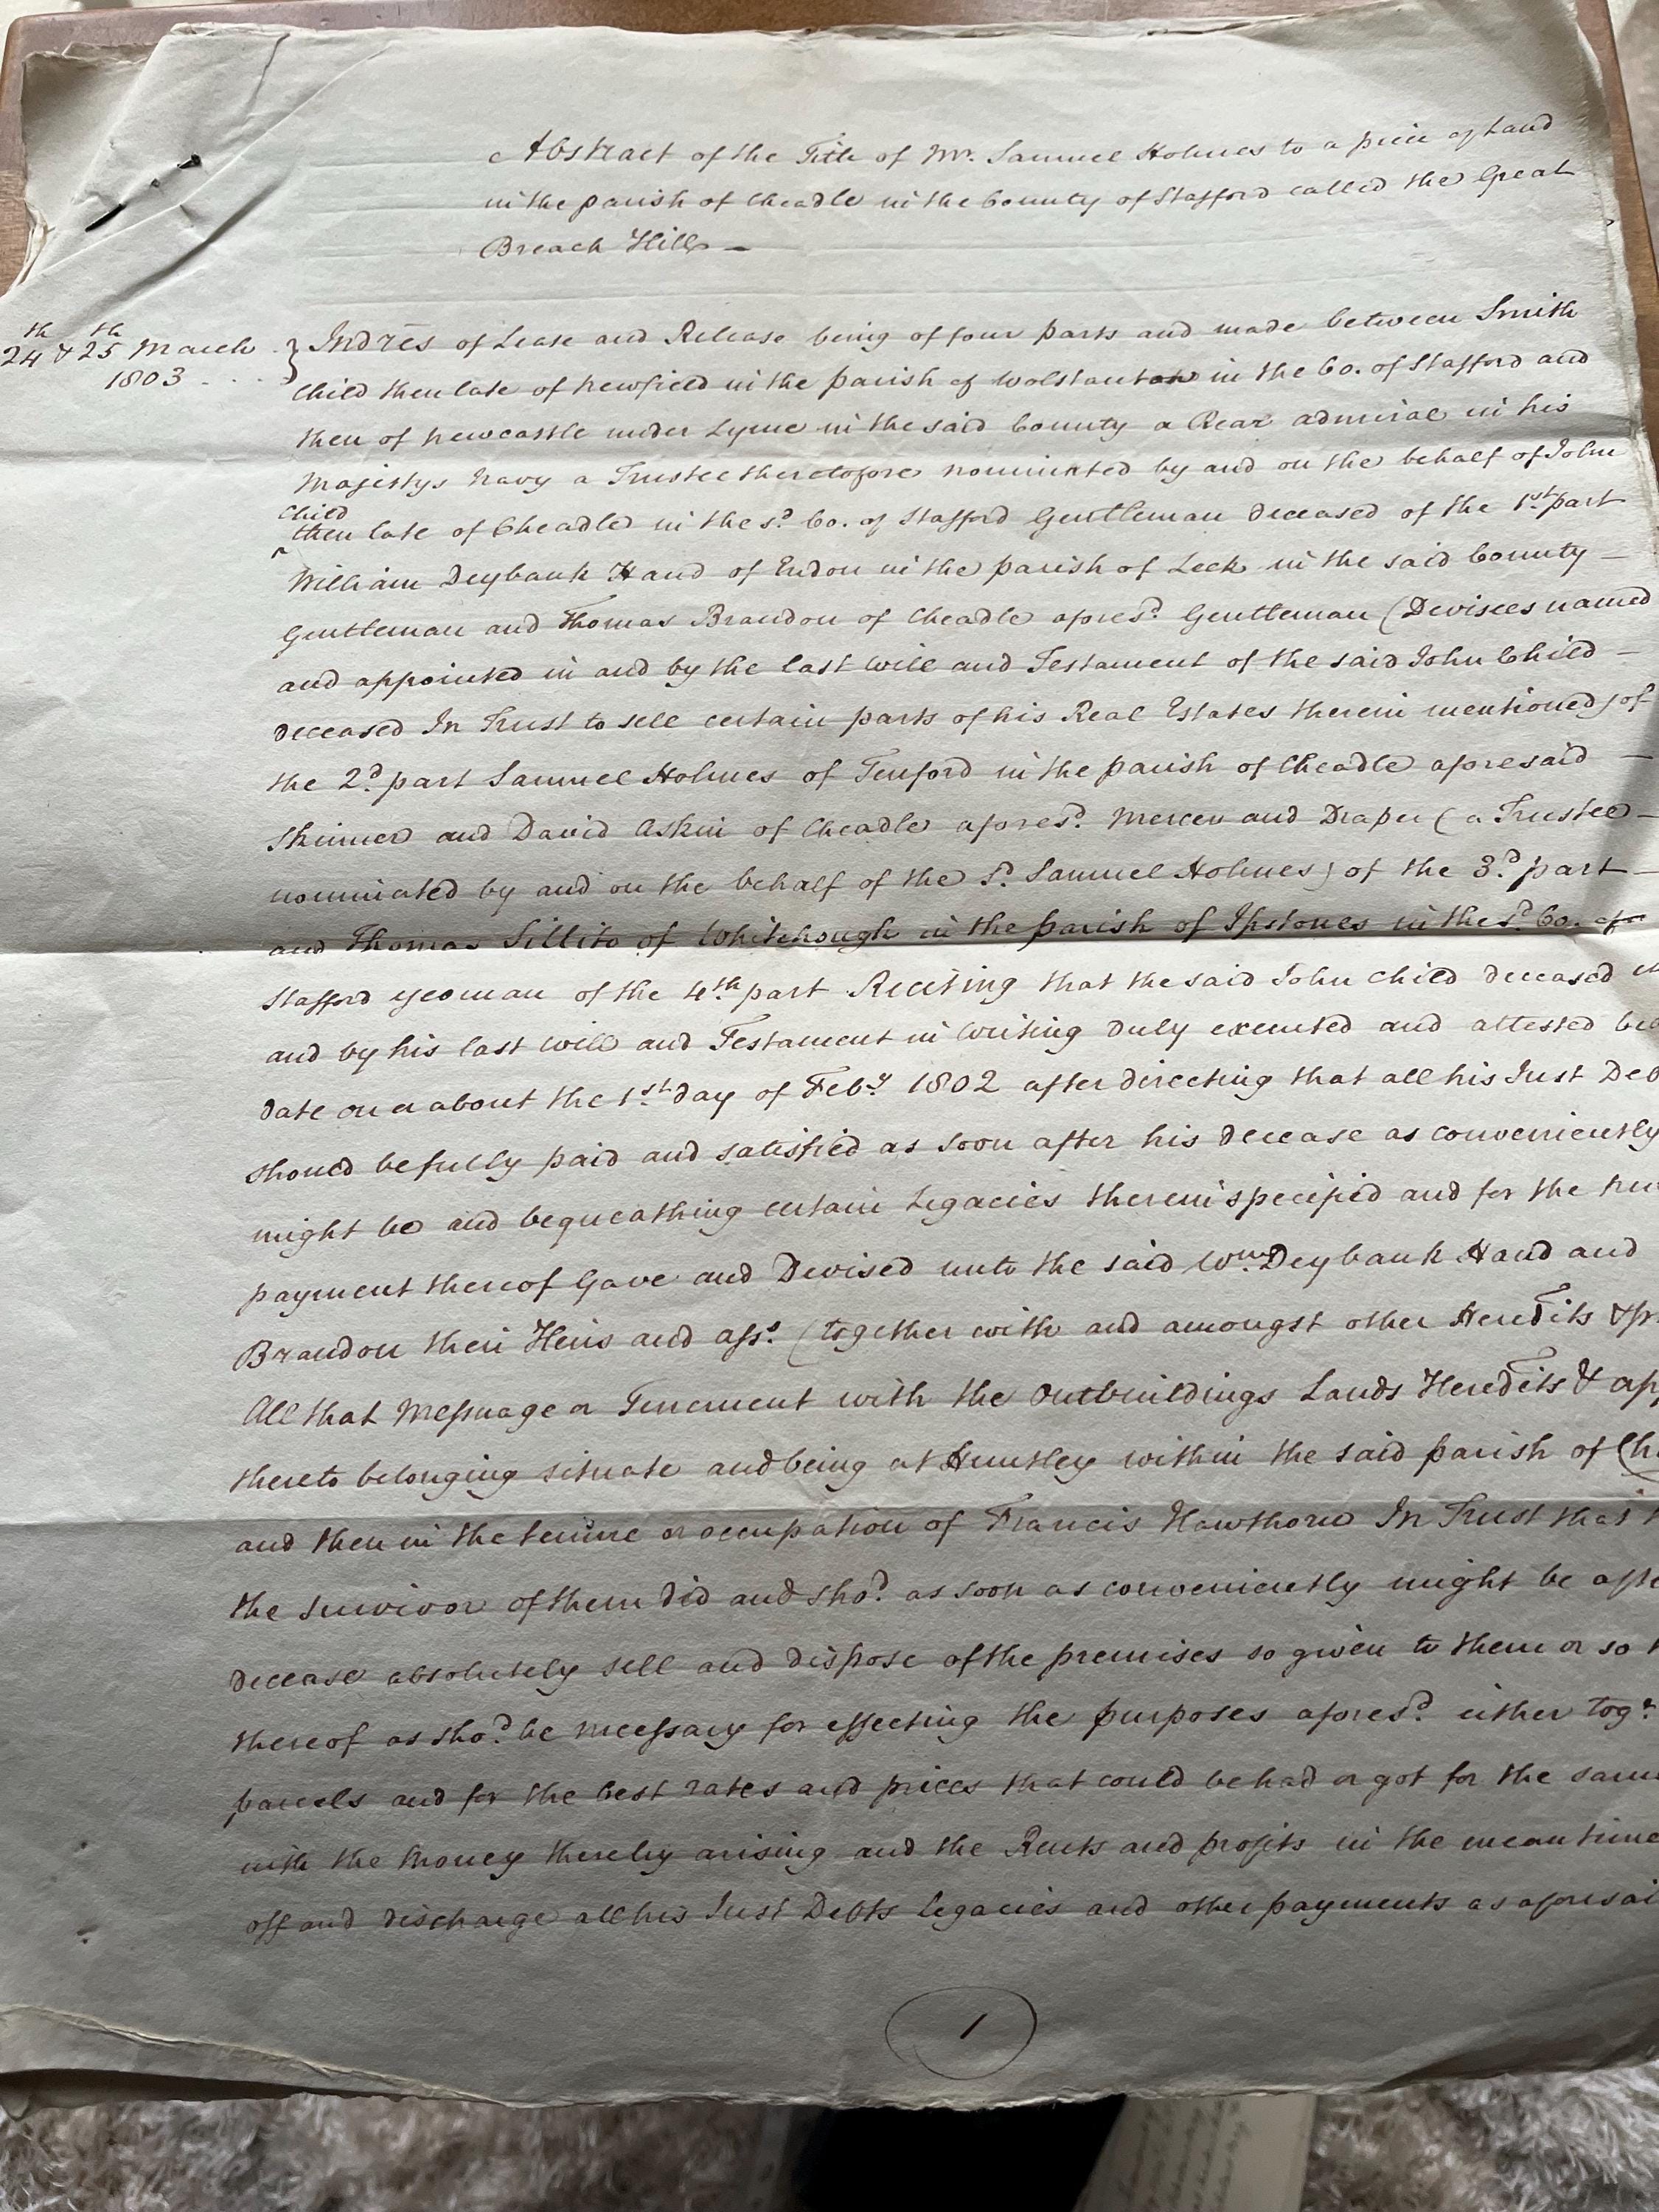 Abstract of the Title of Mr. Samuel Holmes to a piece of Land
in the parish of Cheadle in the County of Stafford called the Great
Breach Hill —
24th & 25th March 1803
Indres of Lease and Release being of four parts and made between Smith
Child then late of Newfield in the parish of Wolstanton in the Co. of Stafford and
then of Newcastle under Lyme in the said County a Rear admiral in his
Majestys Navy a Trustee theretofore nominated by and on the behalf of John
Child
then late of Cheadle in the sd. Co. of Stafford Gentleman deceased of the 1st. part
William Deybank Hand of Endon in the parish of Leek in the said County —
Gentleman and Thomas Brandon of Cheadle afores'd. Gentleman (Devisees named
and appointed in and by the last will and Testament of the said John Child —
deceased In Trust to sell certain parts of his Real Estates therein mentioned) of
the 2d. part Samuel Holmes of Tenford in the parish of Cheadle aforesaid —
Skinner and David Askin of Cheadle aforesd. Mercer and Draper (a Trustee —
nominated by and on the behalf of the Sd. Samuel Holmes) of the 3d. part —
and Thomas Sillito of Whitehough in the parish of Ipstones in the sd. Co. of
Stafford yeoman of the 4th. part Reciting that the said John Child deceased
and by his last will and Testament in Writing duly executed and attested
date on or about the 1st. day of Feby. 1802 after directing that all his Just Deb
should be fully paid and satisfied as soon after his decease as conveniently
might be and bequeathing certain Legacies therein specified and for the
payment thereof Gave and Devised unto the said Wm. Deybank Hand and
Brandon their Heirs and ass. (together with and amongst other Heredits &
All that Messuage or Tenement with the Outbuildings Lands Heredits & app
thereto belonging situate and being at Huntley within the said parish of Ch
and then in the tenure or occupation of Francis Hawthorn In Trust that
the survivor of them did and shod. as soon as conveniently might be
decease absolutely sell and dispose of the premises so given to them or so
thereof as shod. be necessary for effecting the purposes aforesd. either togr.
parcels and for the best rates and prices that could be had or got for the same
with the Money thereby arising and the Rents and profits in the mean time
off and discharge all his Just Debts Legacies and other payments as aforesai
1